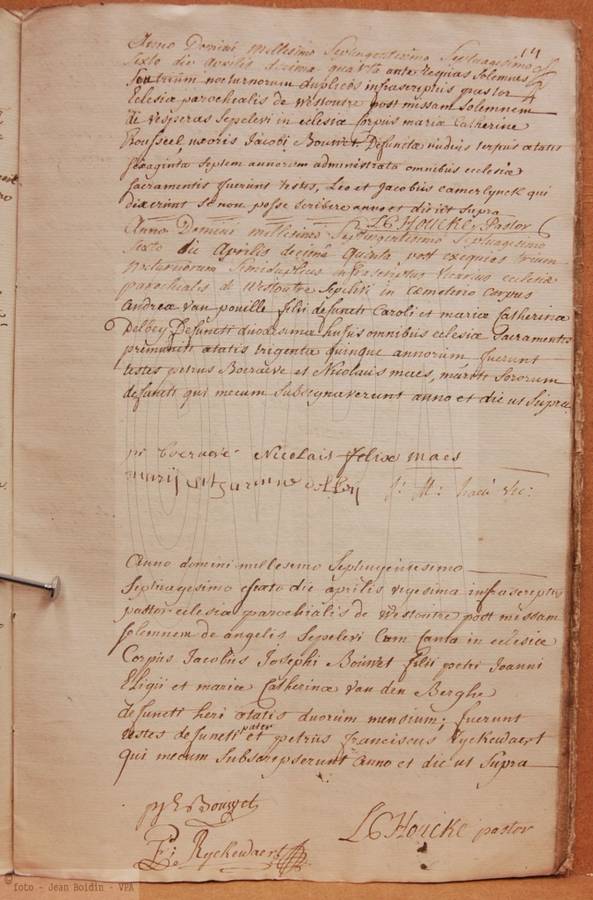 14
Anno Domini millesimo Septingentesimo Septuagesimo
Sexto die Aprilis decima quarta ante exequias Solemnes
Seu trium nocturnorum duplices infrascriptus pastor
Ecclesiæ parochialis de Westoutre post missam Solemnem
de vesperas Sepelevi in ecclesia Corpus mariæ Catherine
Rousseel uxoris Jacobi Bouwet Defuncta nudius tertius ætatis
sexaginta septem annorum administrata omnibus ecclesiæ
Sacramentis fuerunt testes, Leo et Jacobus Camerlynck qui
dixerunt Se non posse scribere anno et die ut Supra
LC Houcke Pastor
Anno Domini millesimo Septingentesimo Septuagesimo
Sexto die Aprilis decima quinta post exequias trium
nocturnorum Semiduplices infrascriptus vicarius ecclesiæ
parochialis de Westoutre Sepelivi in Cemeterio corpus
Andreæ van pouille filii defuncti Caroli et mariæ Catherinæ
Delbey Defuncti duodecima hujus omnibus ecclesiæ Sacramentis
præmuniti ætatis triginta quinque annorum fuerunt
testes petrus Boeraeve et Nicolaus maes, mariti Sororum
defuncti qui mecum Subsignaverunt anno et die ut Supra
pr boeraeve Nicolais felix maes
Anno domini millesimo Septingentesimo
Septuagesimo Sexto die aprilis vigesima infrascriptus
pastor ecclesiæ parochialis de Westoutre post missam
Solemnem de angelis Sepelevi Cum Santa in ecclesia
Corpus Jacobus Josephi Bouwet filii petri Joanni
Eligii et mariæ Catherinæ Van den Berghe
defuncti heri ætatis duorum mensium; fuerunt
testes defuncti pater et petrus franciscus Ryckewaert
qui mecum Subscripserunt Anno et die ut Supra
pJE Bouwet
LC Houcke pastor
P: F: Ryckewaert
© foto - Jean Boidin - VPA